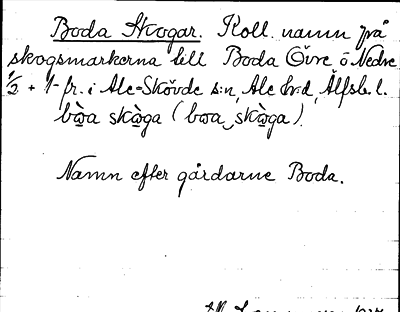 Boda Skogar. Koll. namn på
skogsmarkerna till Boda Övre o Nedre
1/2 + 1/1-fr. i Ale-Skövde s:n, Ale hrd, Älfsb. l.
Namn efter gårdarne Boda.